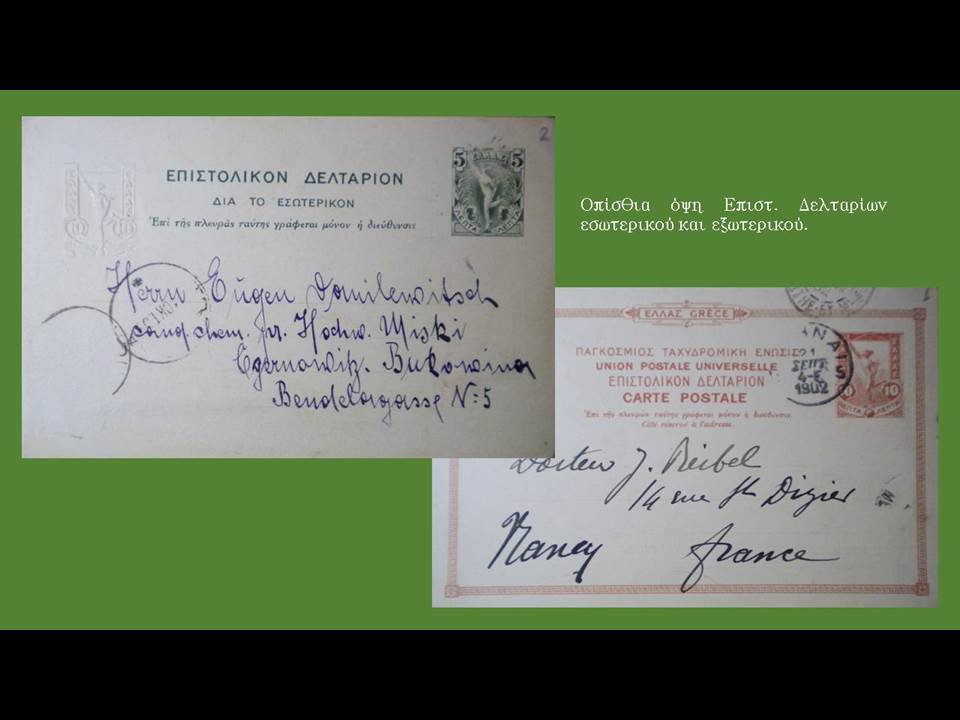 2
ΕΠΙΣΤΟΛΙΚΟΝ ΔΕΛΤΑΡΙΟΝ
ΔΙΑ ΤΟ ΕΣΩΤΕΡΙΚΟΝ
Ἐπὶ τῆς πλευρᾶς ταύτης γράφεται μόνον ἡ διεύθυνσις
5 ΕΛΛΑΣ 5
ΛΕΠΤΑ ΛΕΠΤΑ
Herrn Eugen Danilewitsch
cand chem. pr. Hochw. Miski
Czernowitz. Bukowina
Bendelagasse N: 5
Οπίσθια όψη Επιστ. Δελταρίων
εσωτερικού και εξωτερικού.
ΕΛΛΑΣ GRÈCE
ΠΑΓΚΟΣΜΙΟΣ ΤΑΧΥΔΡΟΜΙΚΗ ΕΝΩΣΙΣ
UNION POSTALE UNIVERSELLE
ΕΠΙΣΤΟΛΙΚΟΝ ΔΕΛΤΑΡΙΟΝ
CARTE POSTALE
Ἐπὶ τῆς πλευρᾶς ταύτης γράφεται μόνον ἡ διεύθυνσις.
Côté réservé à l'adresse.
21
ΣΕΠΤ
4-Ε
1902
ΕΛΛΑΣ
10 10
ΛΕΠΤΑ ΛΕΠΤΑ
J. Reibel
14 rue St Dizier
Nancy france